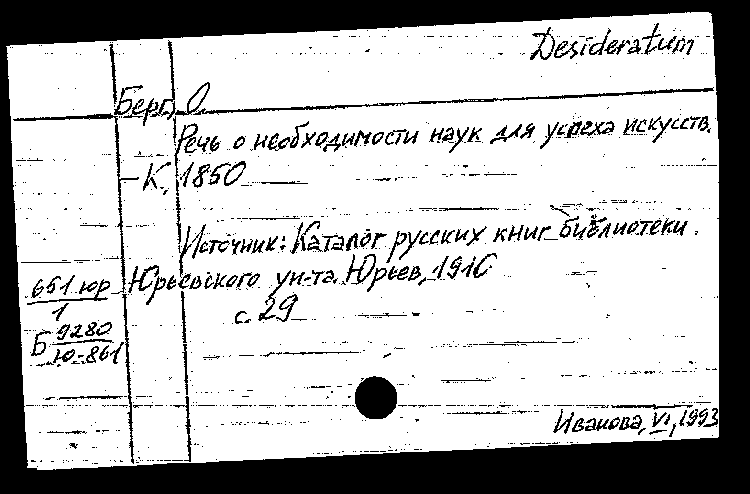 Desideratum
Берг, О.
Речь о необходимости наук для успеха искусств.
– К., 1850
Источник: Каталог русских книг библиотеки
Юрьевского ун-та. Юрьев, 1910
с. 29
651 юр
1
Б 9280
Ю-861
Иванова, VI, 1993